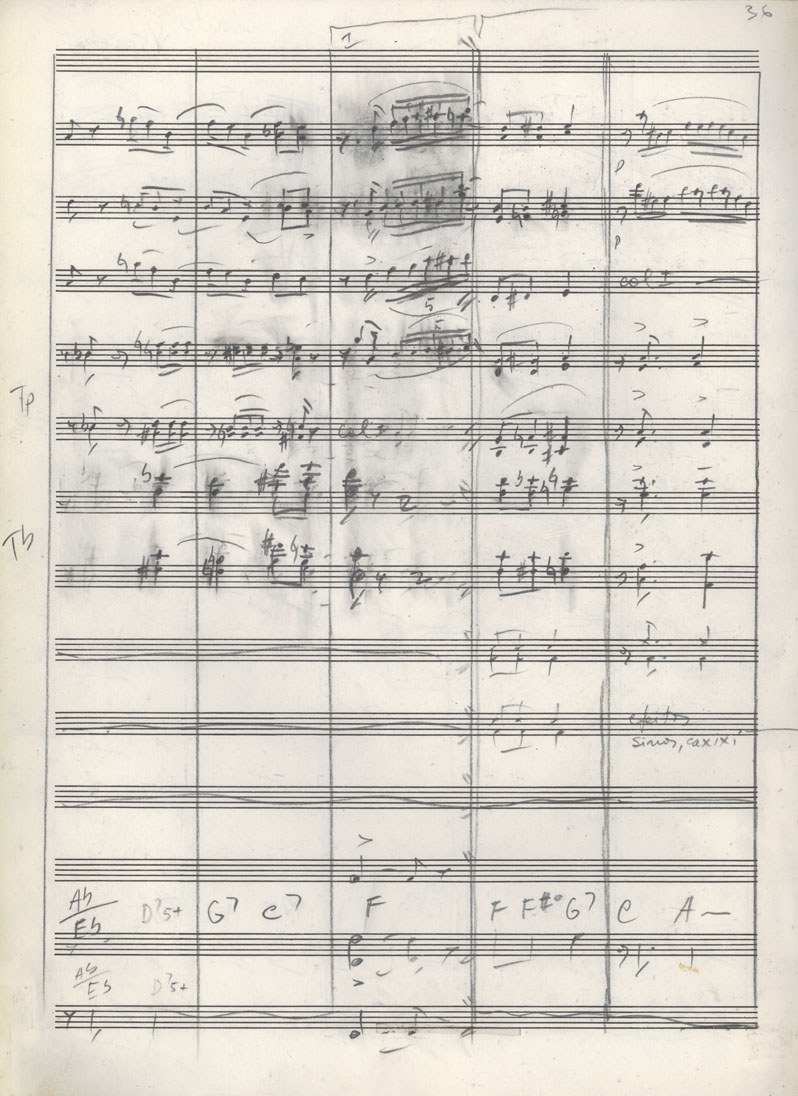 36
1
p
p
col I
5
5
Tp
Tb
efeitos
sinos, caxixi
Ab/Eb D7 5+ G7 C7 F F F#° G7 C A–
Ab/Eb D7 5+